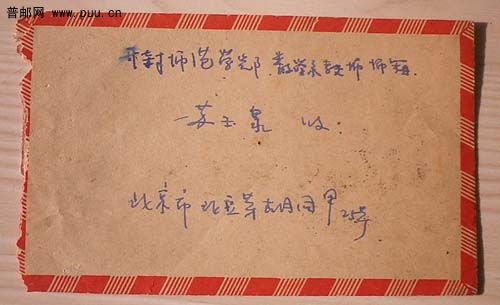 普邮网 www.puu.cn
开封师范学院 数学系教师
苏玉泉 收
北京市北豆芽胡同甲25号